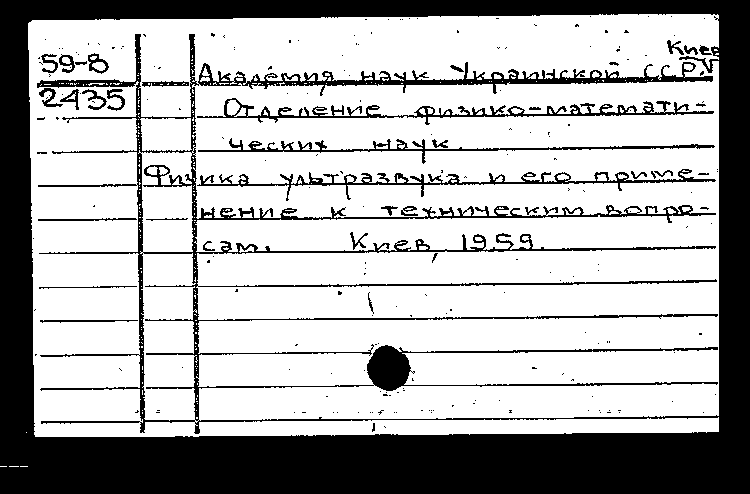 Киев
59-8
2435
Академия наук Украинской ССР.
Отделение физико-математи-
ческих наук.
Физика ультразвука и его приме-
нение к техническим вопро-
сам. Киев, 1959.